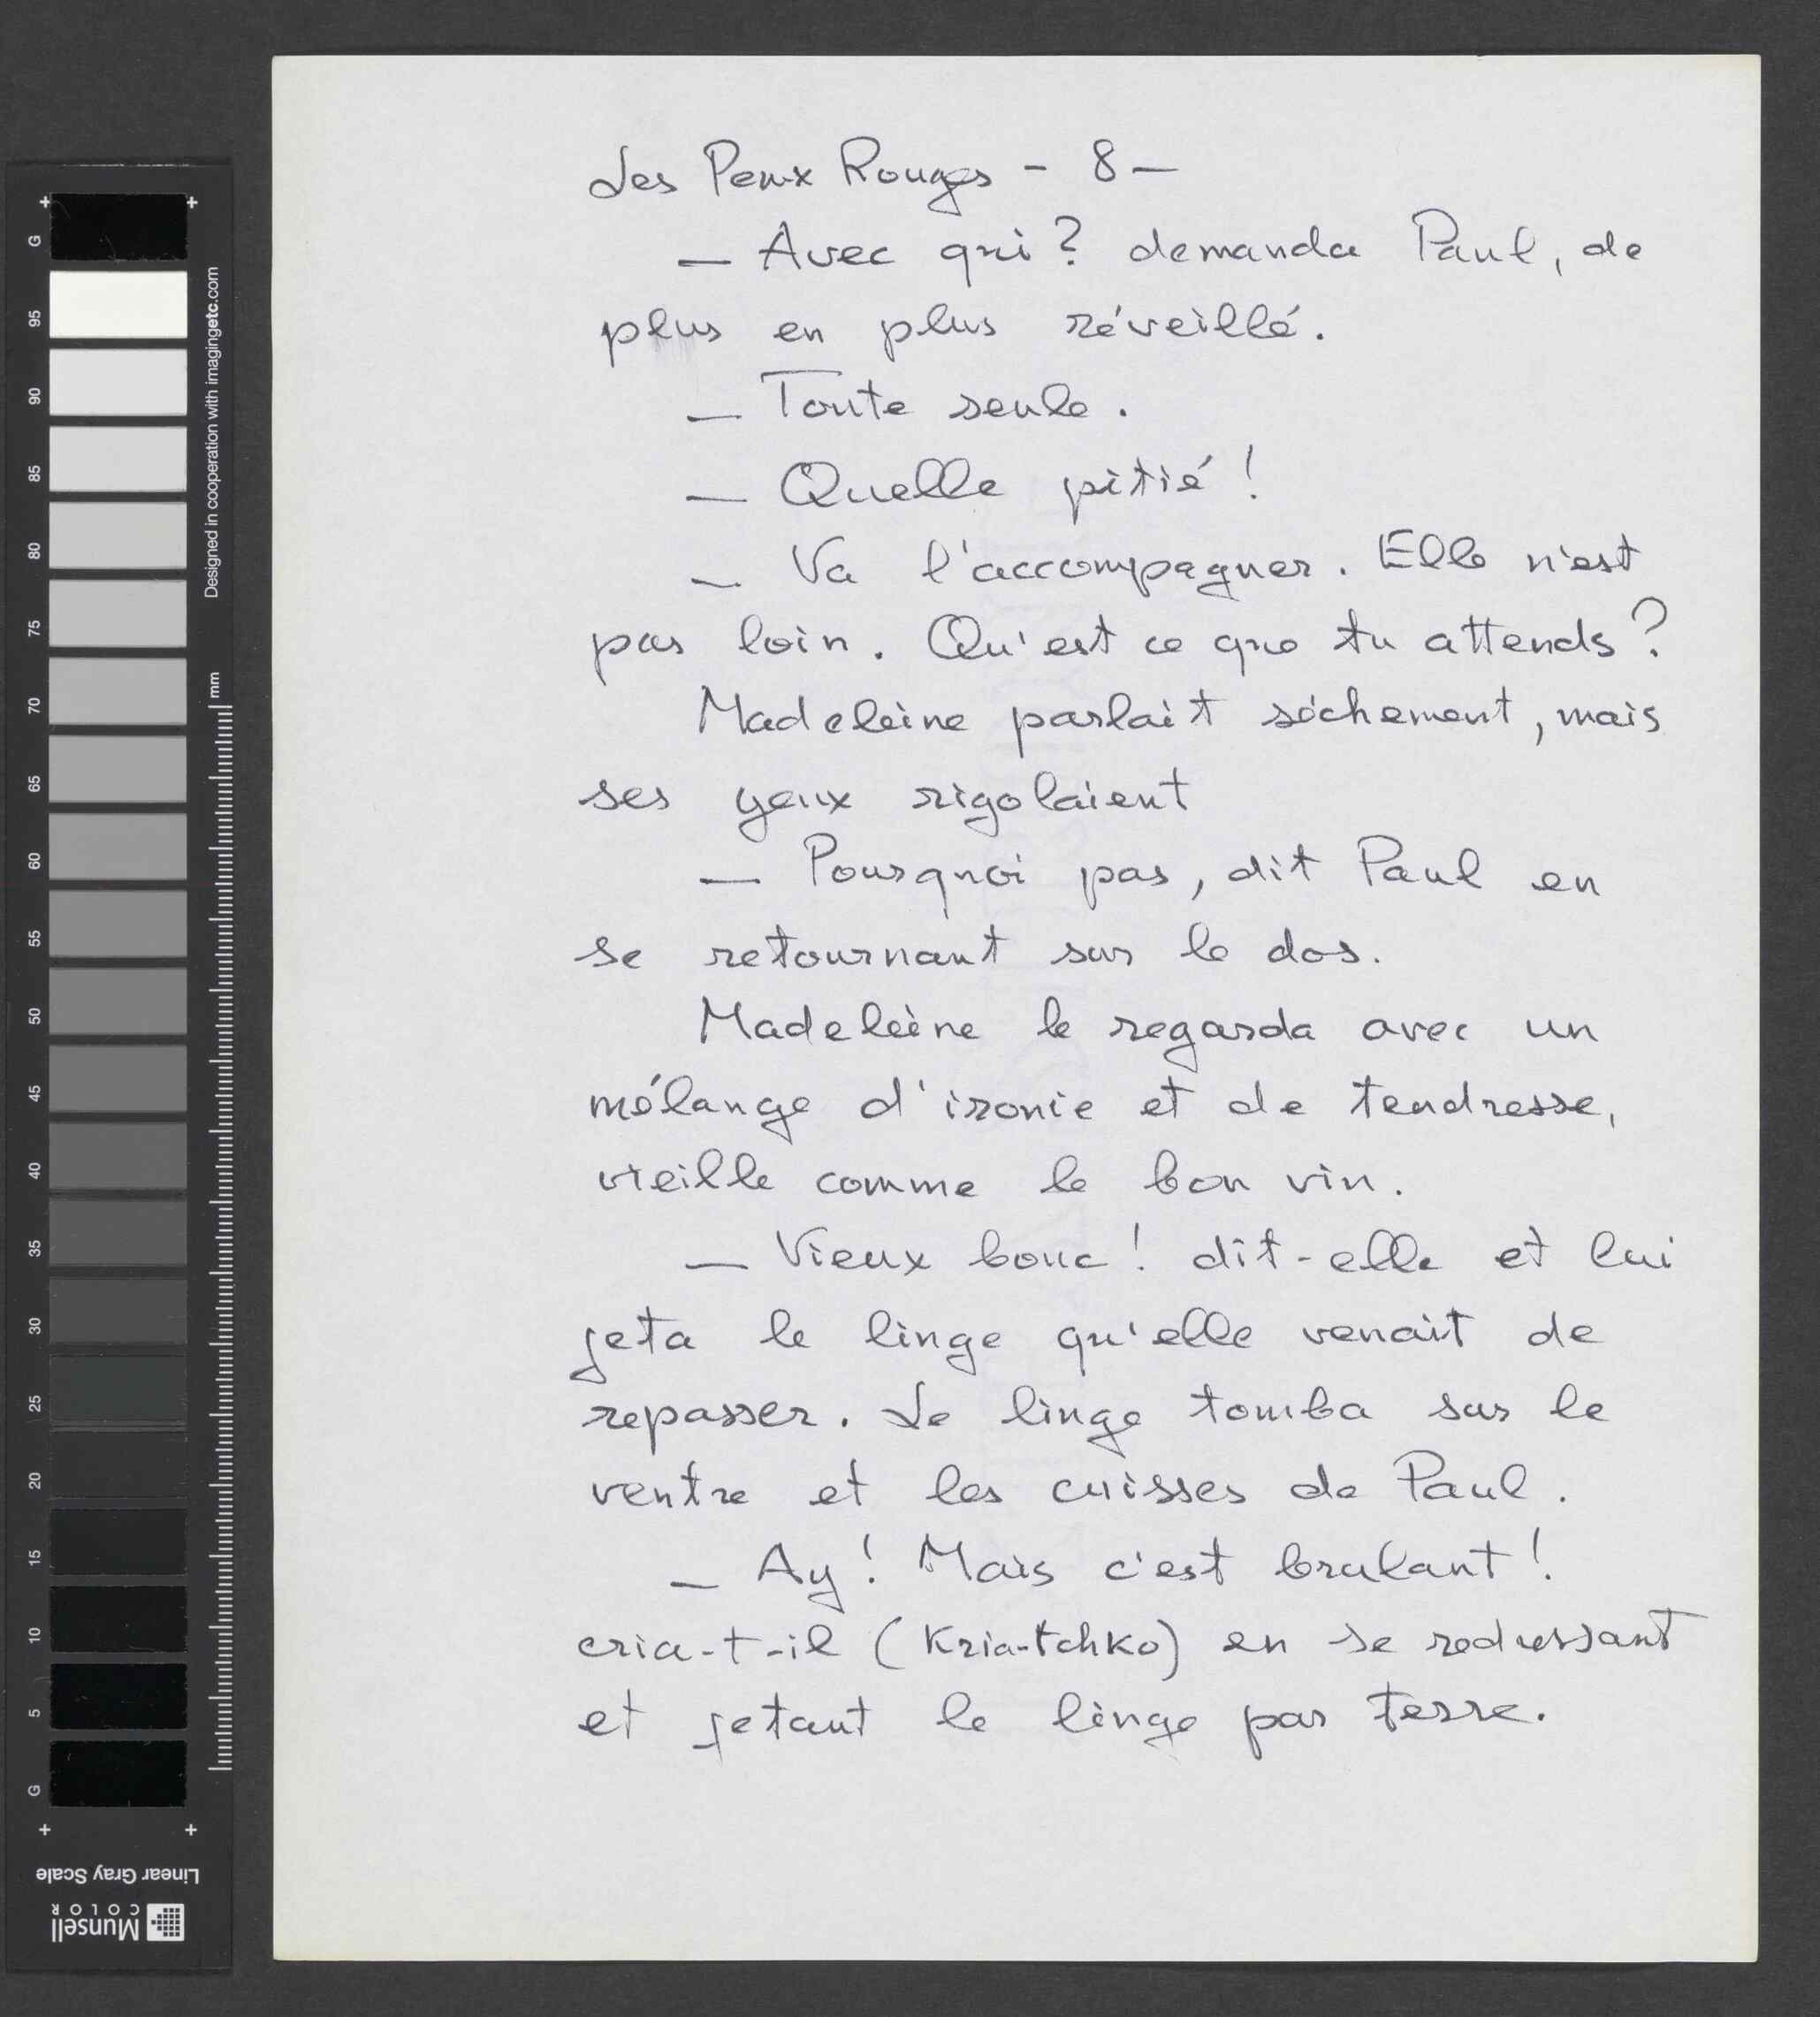 Les Peux Rouges - 8 -
— Avec qui? demanda Paul, de
plus en plus réveillé.
— Toute seule.
— Quelle pitié!
— Va l'accompagner. Elle n'est
pas loin. Qu'est ce que tu attends?
Madeleine parlait séchement, mais
ses yeux rigolaient
— Pourquoi pas, dit Paul en
se retournant sur le dos.
Madeleine le regarda avec un
mélange d'ironie et de tendresse,
vieille comme le bon vin.
— Vieux bouc! dit-elle et lui
jeta le linge qu'elle venait de
repasser. Le linge tomba sur le
ventre et les cuisses de Paul.
— Ay! Mais c'est brulant!
cria-t-il (Kria-tchko) en se redressant
et jetant le linge par terre.
G 95 90 85 80 75 70 65 60 55 50 45 40 35 30 25 20 15 10 5 G
Designed in cooperation with imagingetc.com
mm
Linear Gray Scale
Munsell
COLOR